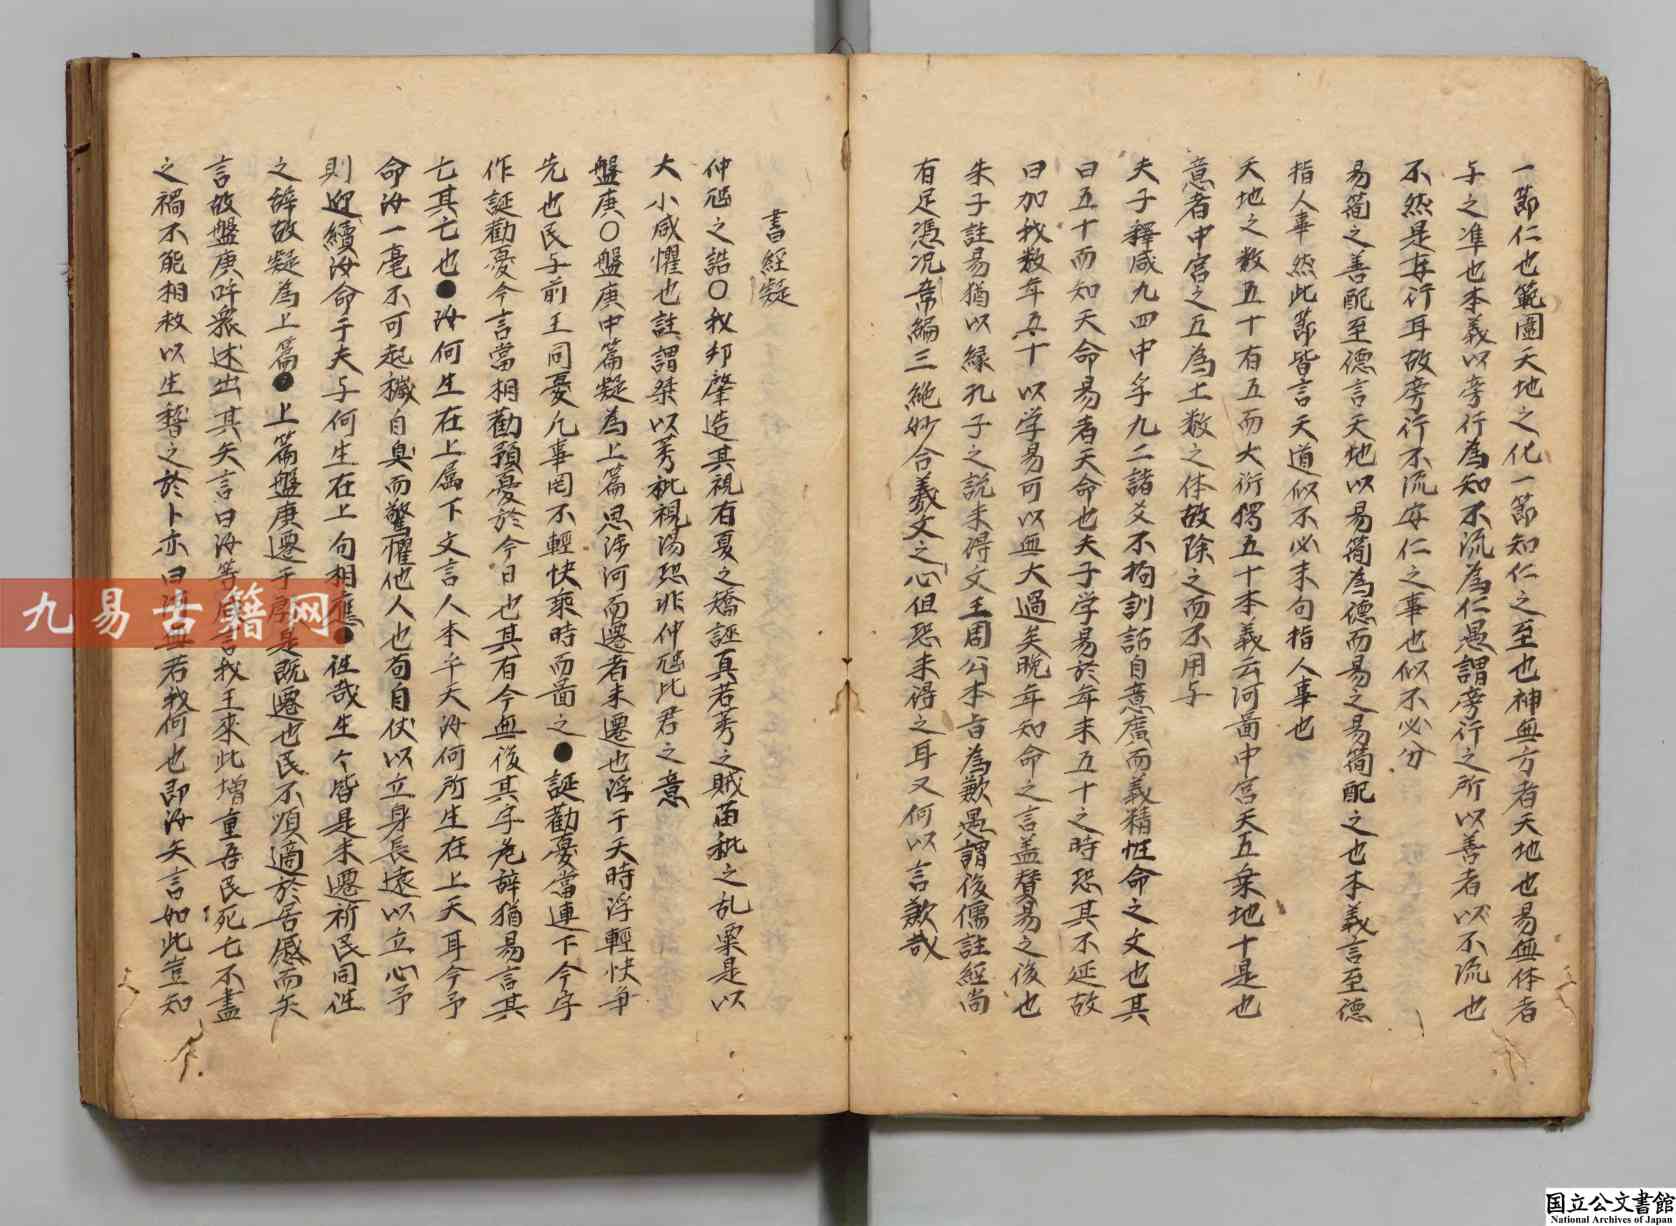 一節仁也範圍天地之化一節知仁之至也神無方者天地也易無体者
与之準也本義以旁行為知不流為仁愚謂旁行之所以善者以不流也
不然是妄行耳故旁行不流安仁之事也似不必分
易簡之善配至德言天地以易簡為德而易之易簡配之也本義言至德
指人事然此節皆言天道似不必末句指人事也
天地之数五十有五而大衍獨五十本義云河啚中宮天五乗地十是也
意者中宮之五為土数之体故除之而不用与
夫子釋咸九四中孚九二諸爻不拘訓詁自意廣而義精性命之文也其
曰五十而知天命易者天命也夫子学易於年未五十之時恐其不延故
曰加我数年五十以学易可以無大過矣晚年知命之言盖賛易之後也
朱子註易猶以緣孔子之説未得文王周公本旨為歎愚謂後儒註經尚
有足憑况韋編三絶妙合羲文之心但恐未得之耳又何以言歎哉
書經疑
仲虺之誥○我邦肇造其視有夏之矯誣真若莠之賊苗秕之乱粟是以
大小咸懼也註謂桀以莠秕視湯恐非仲虺比君之意
盤庚○盤庚中篇疑為上篇思涉河而遷者未遷也浮于天時浮輕快争
先也民与前王同憂凡事罔不輕快乘時而啚之●誕勸憂當連下今字
作誕勸憂今言當相勸預憂於今日也其有今無後其字危辞猶易言其
亡其亡也●汝何生在上属下文言人本乎天汝何所生在上天耳今予
命汝一毫不可起穢自臭而驚懼他人也苟自仗以立身長遠以立心予
則迓續汝命于夫与何生在上句相應●徃哉生々皆是未遷祈民同徃
之辞故疑為上篇●上篇盤庚遷于是既遷也民不頃適於居慼而矢
言故盤庚呼衆述出其矢言曰汝等言我王來此增重吾民死亡不盡
之禍不能相救以生誓之於卜亦曰無若我何也即汝矢言如此豈知
九易古籍网
国立公文書館
National Archives of Japan